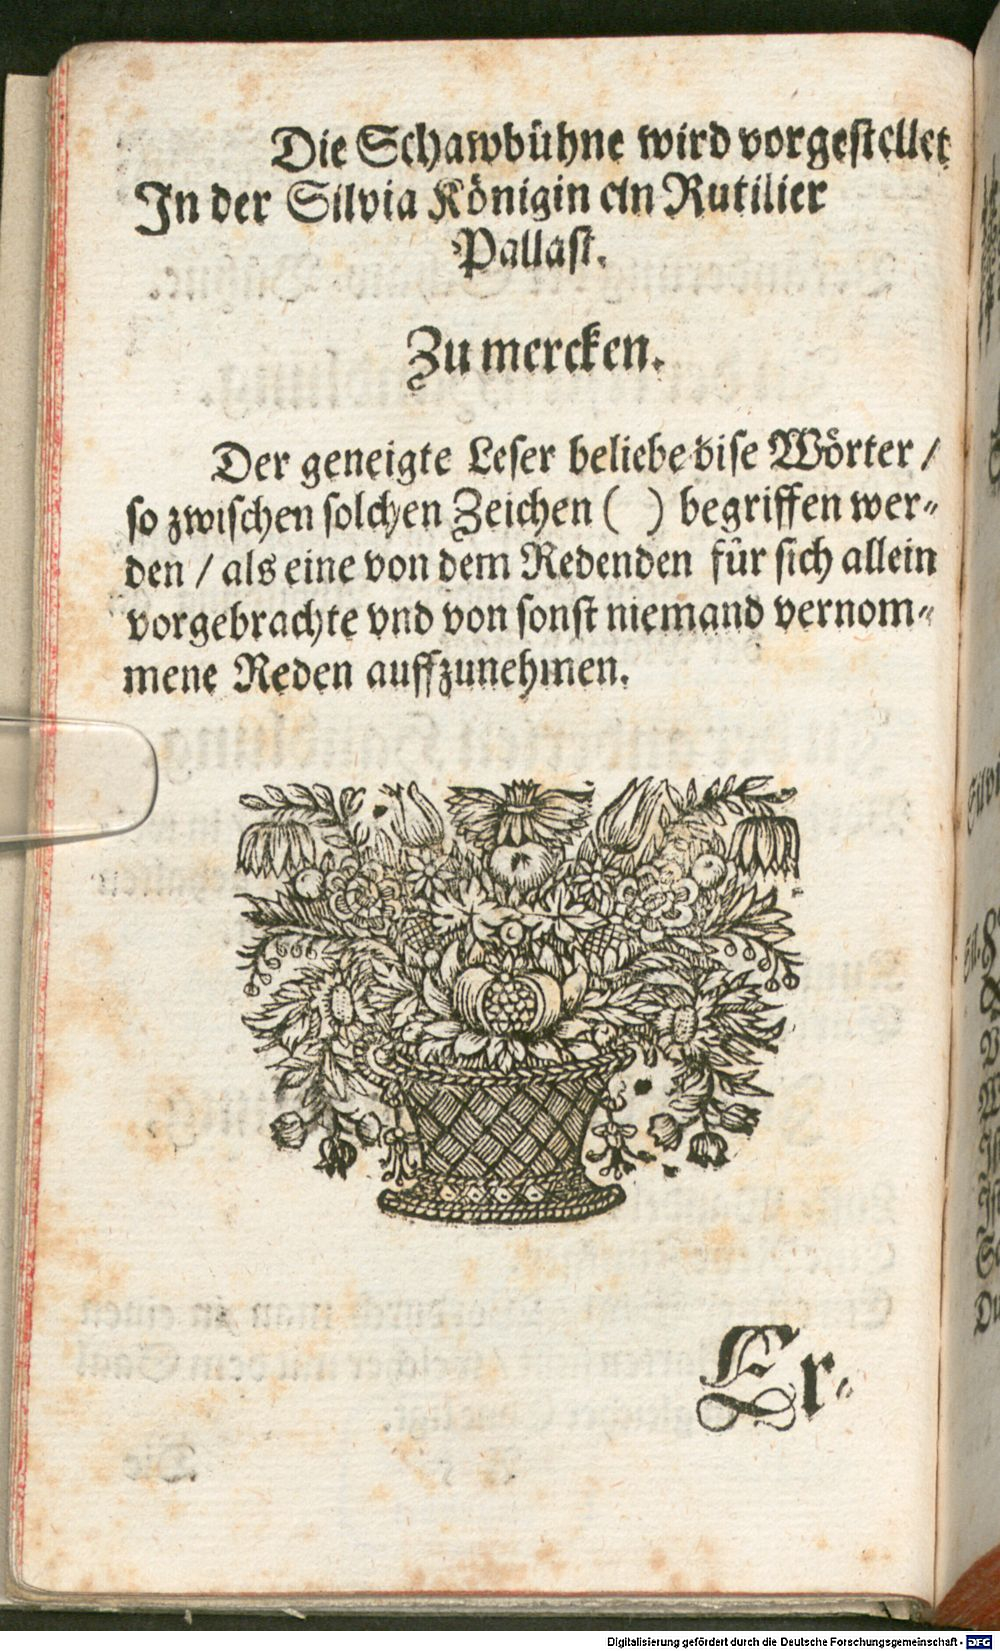 Die Schawbühne wird vorgestellet
In der Silvia Königin der Rutilier
Pallast.
Zu mercken.
Der geneigte Leser beliebe dise Wörter /
so zwischen solchen Zeichen ( ) begriffen wer-
den / als eine von dem Redenden für sich allein
vorgebrachte vnd von sonst niemand vernom-
mene Reden auffzunehmen.
Er-
Digitalisierung gefördert durch die Deutsche Forschungsgemeinschaft - DFG